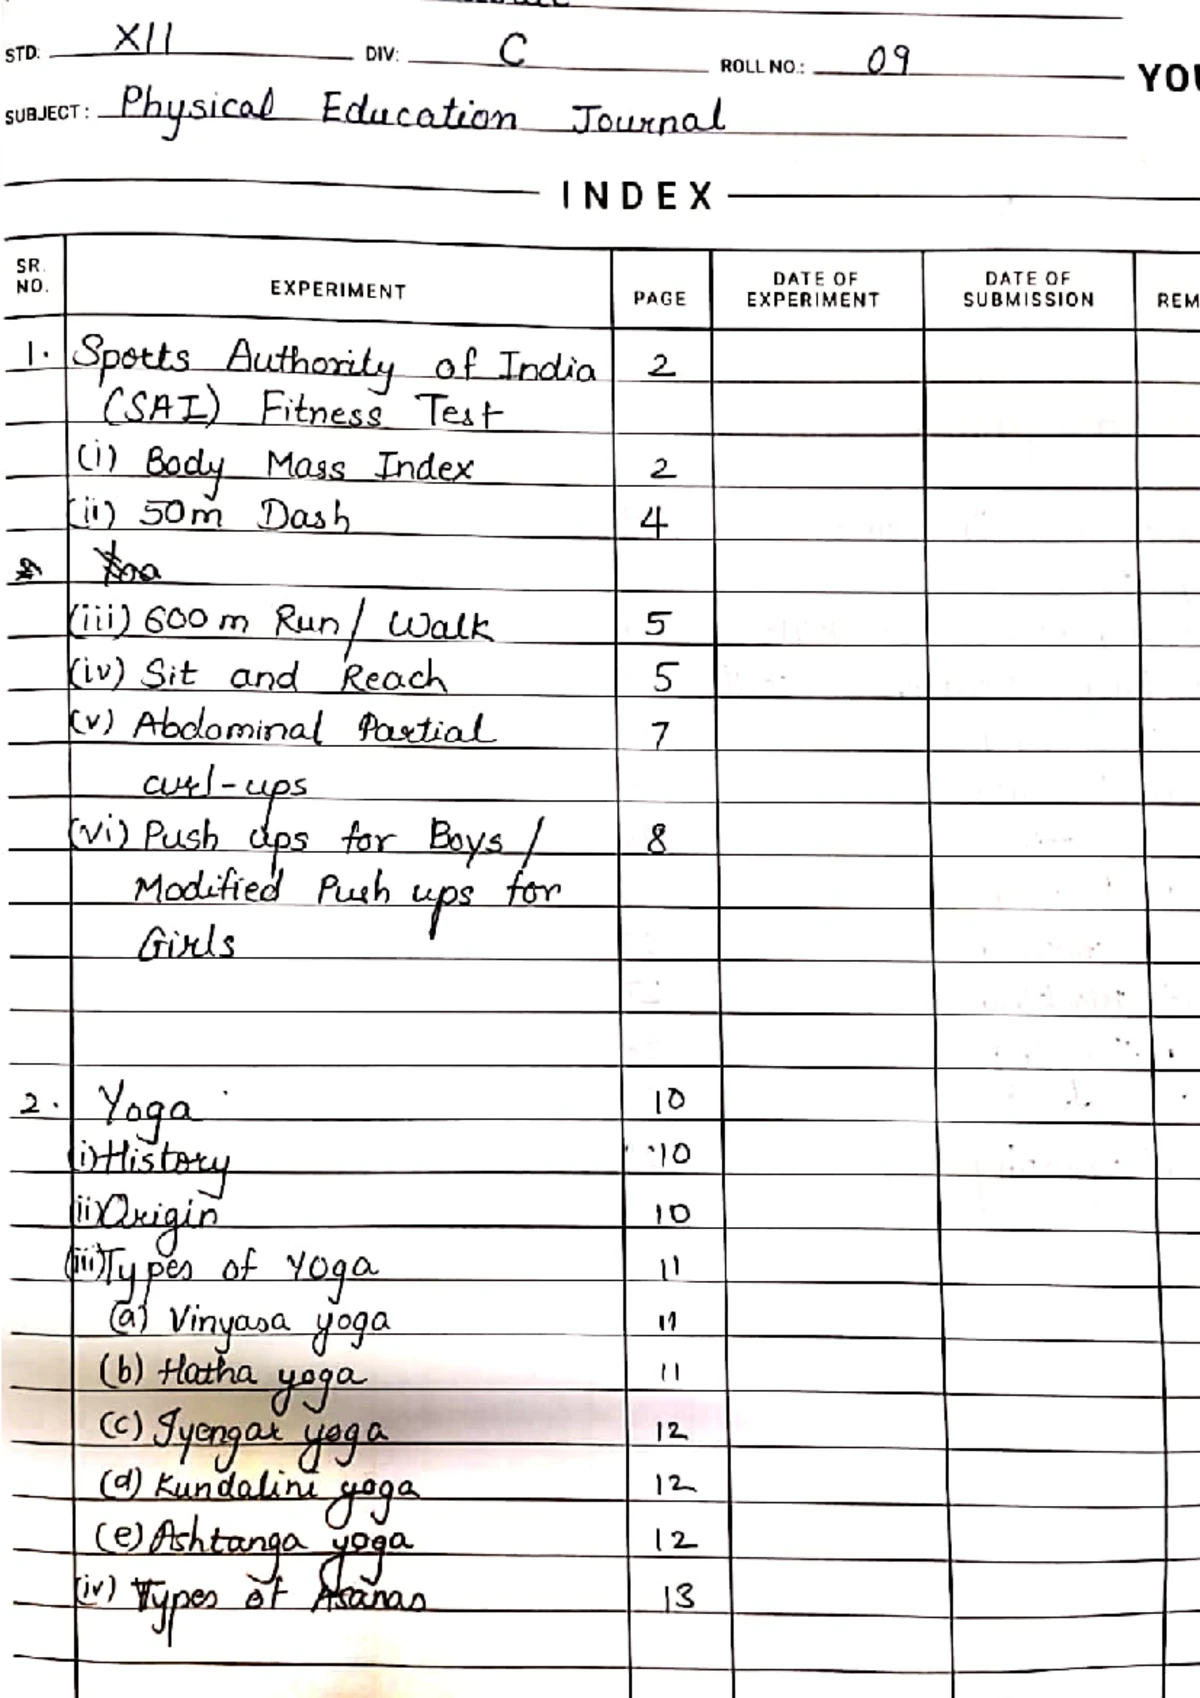 STD. XII DIV: C ROLL NO.: 09
YOU
SUBJECT: Physical Education Journal
INDEX
SR. NO. EXPERIMENT PAGE DATE OF EXPERIMENT DATE OF SUBMISSION REM
1. Sports Authority of India 2
(SAI) Fitness Test
(i) Body Mass Index 2
(ii) 50m Dash 4
(iii) 600 m Run/ Walk 5
(iv) Sit and Reach 5
(v) Abdominal Partial 7
curl-ups
(vi) Push ups for Boys / 8
Modified Push ups for
Girls
2. Yoga 10
(i) History 10
(ii) Origin 10
(iii) Types of Yoga 11
(a) Vinyasa yoga 11
(b) Hatha yoga 11
(c) Iyengar yoga 12
(d) Kundalini yoga 12
(e) Ashtanga yoga 12
(iv) Types of Asanas 13